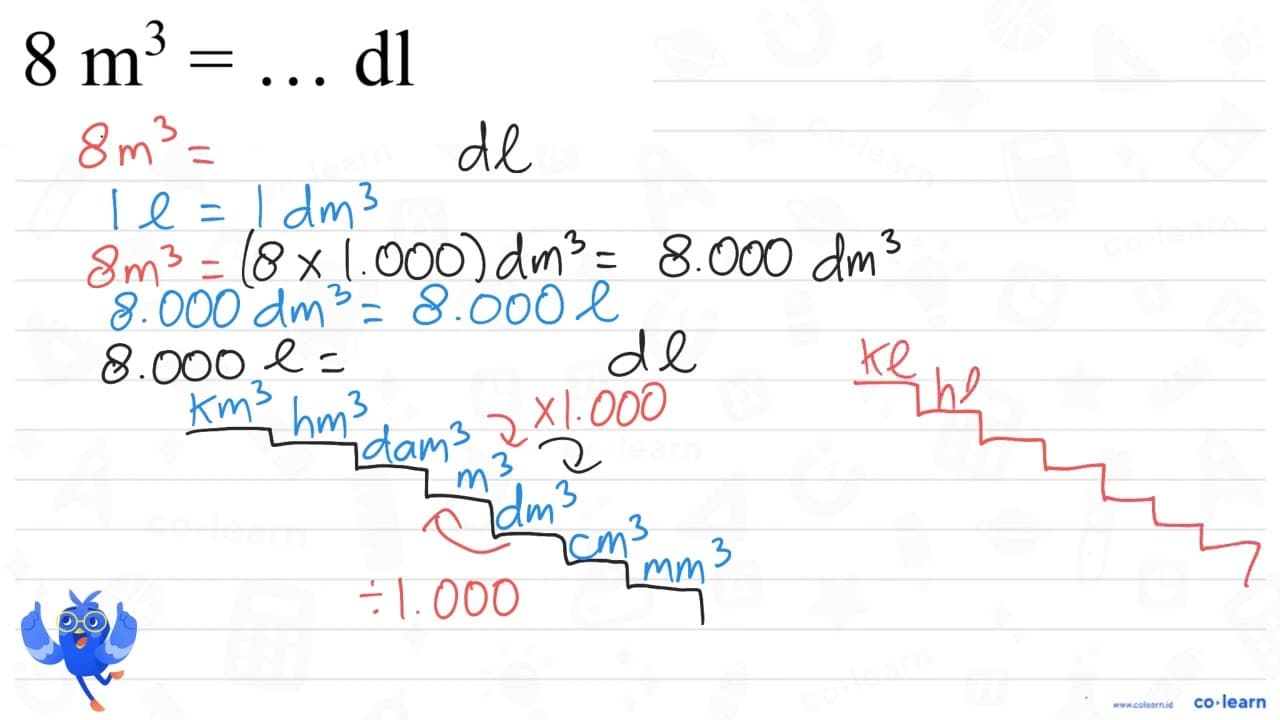 8 m³ = ... dl
8m³ = dl
1 l = 1 dm³
8m³ = (8 x 1.000) dm³ = 8.000 dm³
8.000 dm³ = 8.000 l
8.000 l = dl
km³ hm³ dam³ m³ dm³ cm³ mm³
x1.000
÷1.000
kl hl
www.colearn.id co·learn